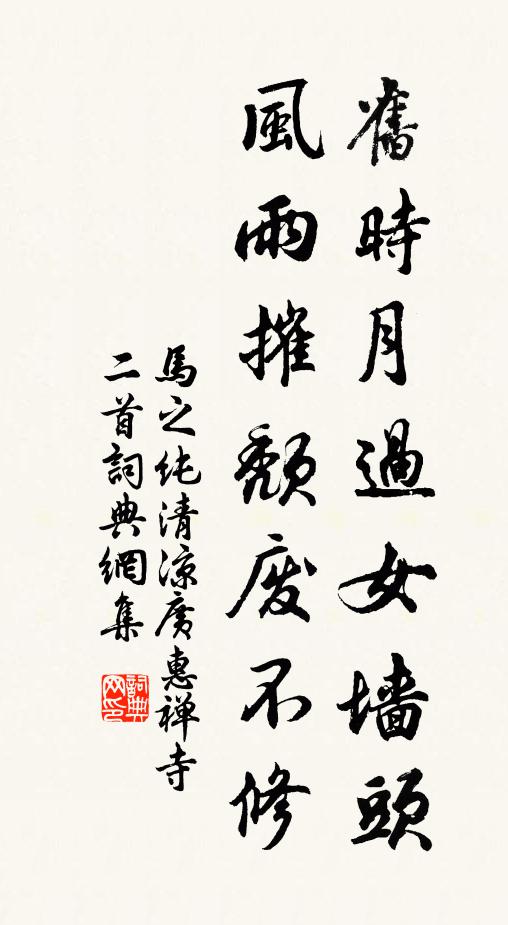 舊時月過女墻頭
風雨摧頽廢不修
馬之純清涼廣惠禅寺
二首詞典網集
詞典
网印